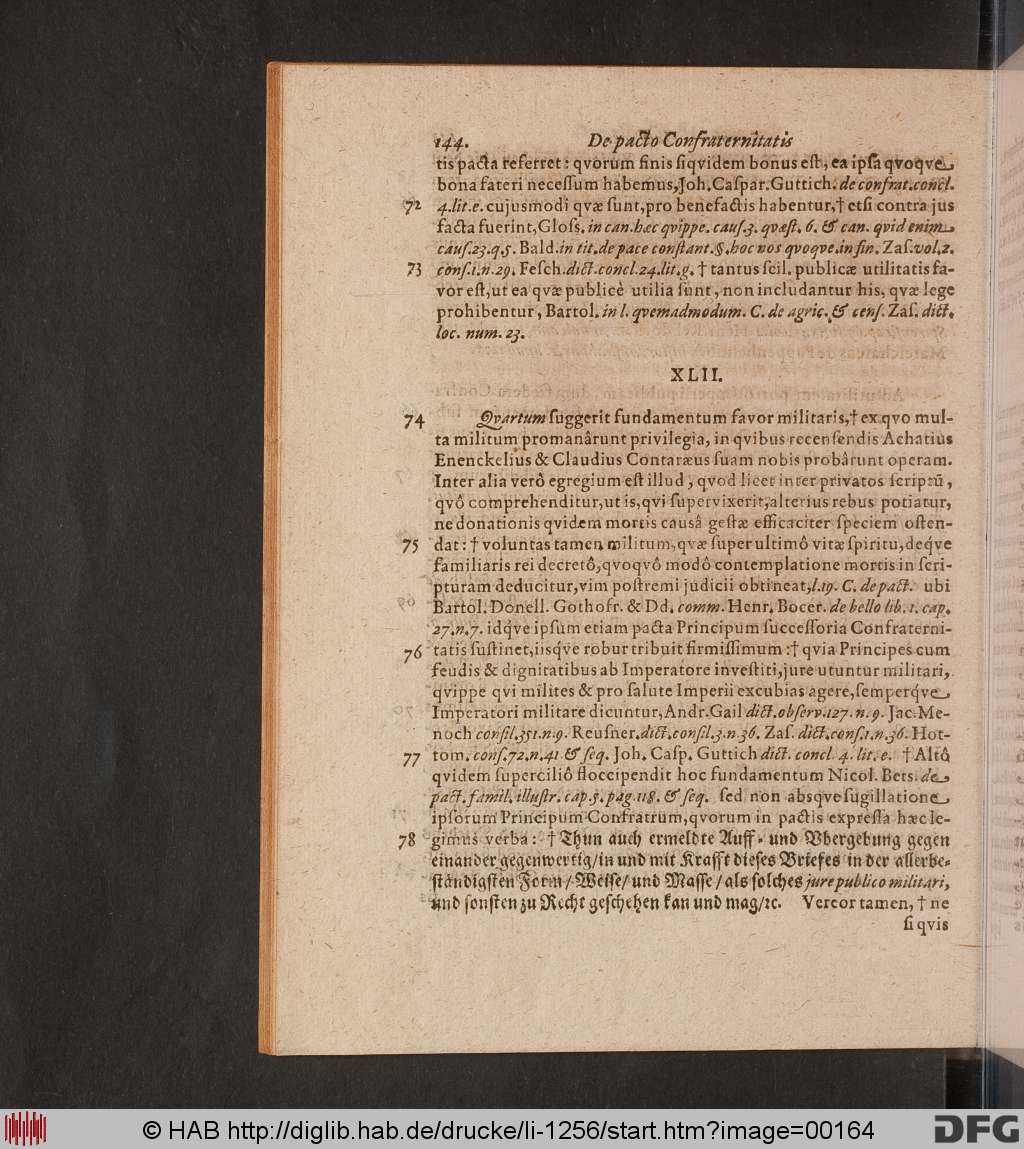 144. De pacto Confraternitatis
tis pacta referret: qvorum finis siqvidem bonus est, ea ipsa qvoqve
bona fateri necessum habemus, Joh. Caspar. Guttich. de confrat. concl.
72 4. lit. e. cujusmodi qvæ sunt, pro benefactis habentur, † etsi contra jus
facta fuerint, Gloss. in can. hæc qvippe. caus. 3. qvæst. 6. & can. qvid enim
caus. 23. q. 5. Bald. in tit. de pace constant. §. hoc vos qvoqve. in fin. Zas. vol. 2.
73 cons. 1. n. 29. Fesch. dict. concl. 24. lit. g. † tantus scil. publicæ utilitatis fa-
vor est, ut ea qvæ publicè utilia sunt, non includantur his, qvæ lege
prohibentur, Bartol. in l. qvemadmodum. C. de agric. & cens. Zas. dict.
loc. num. 23.
XLII.
74 Qvartum suggerit fundamentum favor militaris, † ex qvo mul-
ta militum promanârunt privilegia, in qvibus recensendis Achatius
Enenckelius & Claudius Contaræus suam nobis probârunt operam.
Inter alia verò egregium est illud, qvod licet inter privatos scriptũ,
qvô comprehenditur, ut is, qvi supervixerit, alterius rebus potiatur,
ne donationis qvidem mortis causâ gestæ efficaciter speciem osten-
75 dat: † voluntas tamen militum, qvæ super ultimô vitæ spiritu, deq́ve
familiaris rei decretô, qvoqvô modô contemplatione mortis in scri-
pturam deducitur, vim postremi judicii obtineat, l. 19. C. de pact. ubi
Bartol. Donell. Gothofr. & Dd. comm. Henr. Bocer. de bello lib. 1. cap.
27. n. 7. idq́ve ipsum etiam pacta Principum successoria Confraterni-
76 tatis sustinet, iisq́ve robur tribuit firmissimum: † qvia Principes cum
feudis & dignitatibus ab Imperatore investiti, jure utuntur militari,
qvippe qvi milites & pro salute Imperii excubias agere, semperq́ve
Imperatori militare dicuntur, Andr. Gail dict. observ. 127. n. 9. Jac. Me-
noch consil. 351. n. 9. Reusner. dict. consil. 3. n. 36. Zas. dict. cons. 1. n. 36. Hot-
77 tom. cons. 72. n. 41. & seq. Joh. Casp. Guttich dict. concl. 4. lit. e. † Altô
qvidem superciliô floccipendit hoc fundamentum Nicol. Bets. de
pact. famil. illustr. cap. 5. pag. 118. & seq. sed non absqve sugillatione
ipsorum Principum Confratrum, qvorum in pactis expressa hæc le-
78 gimus verba: † Thun auch ermeldte Auff- und Vbergebung gegen
einander gegenwertig/ in und mit Krafft dieses Briefes in der allerbe-
ständigsten Form/ Weise/ und Masse/ als solches jure publico militari,
und sonsten zu Recht geschehen kan und mag/ ꝛc. Vereor tamen, † ne
si qvis
© HAB http://diglib.hab.de/drucke/li-1256/start.htm?image=00164
DFG